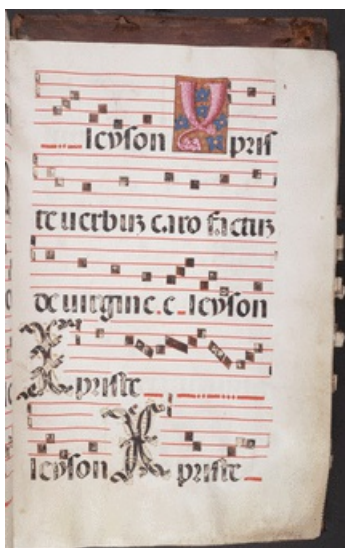 leyson Xpris
te uerbuz caro factuz
de uirgine. e leyson
Xpriste
leyson Xpriste